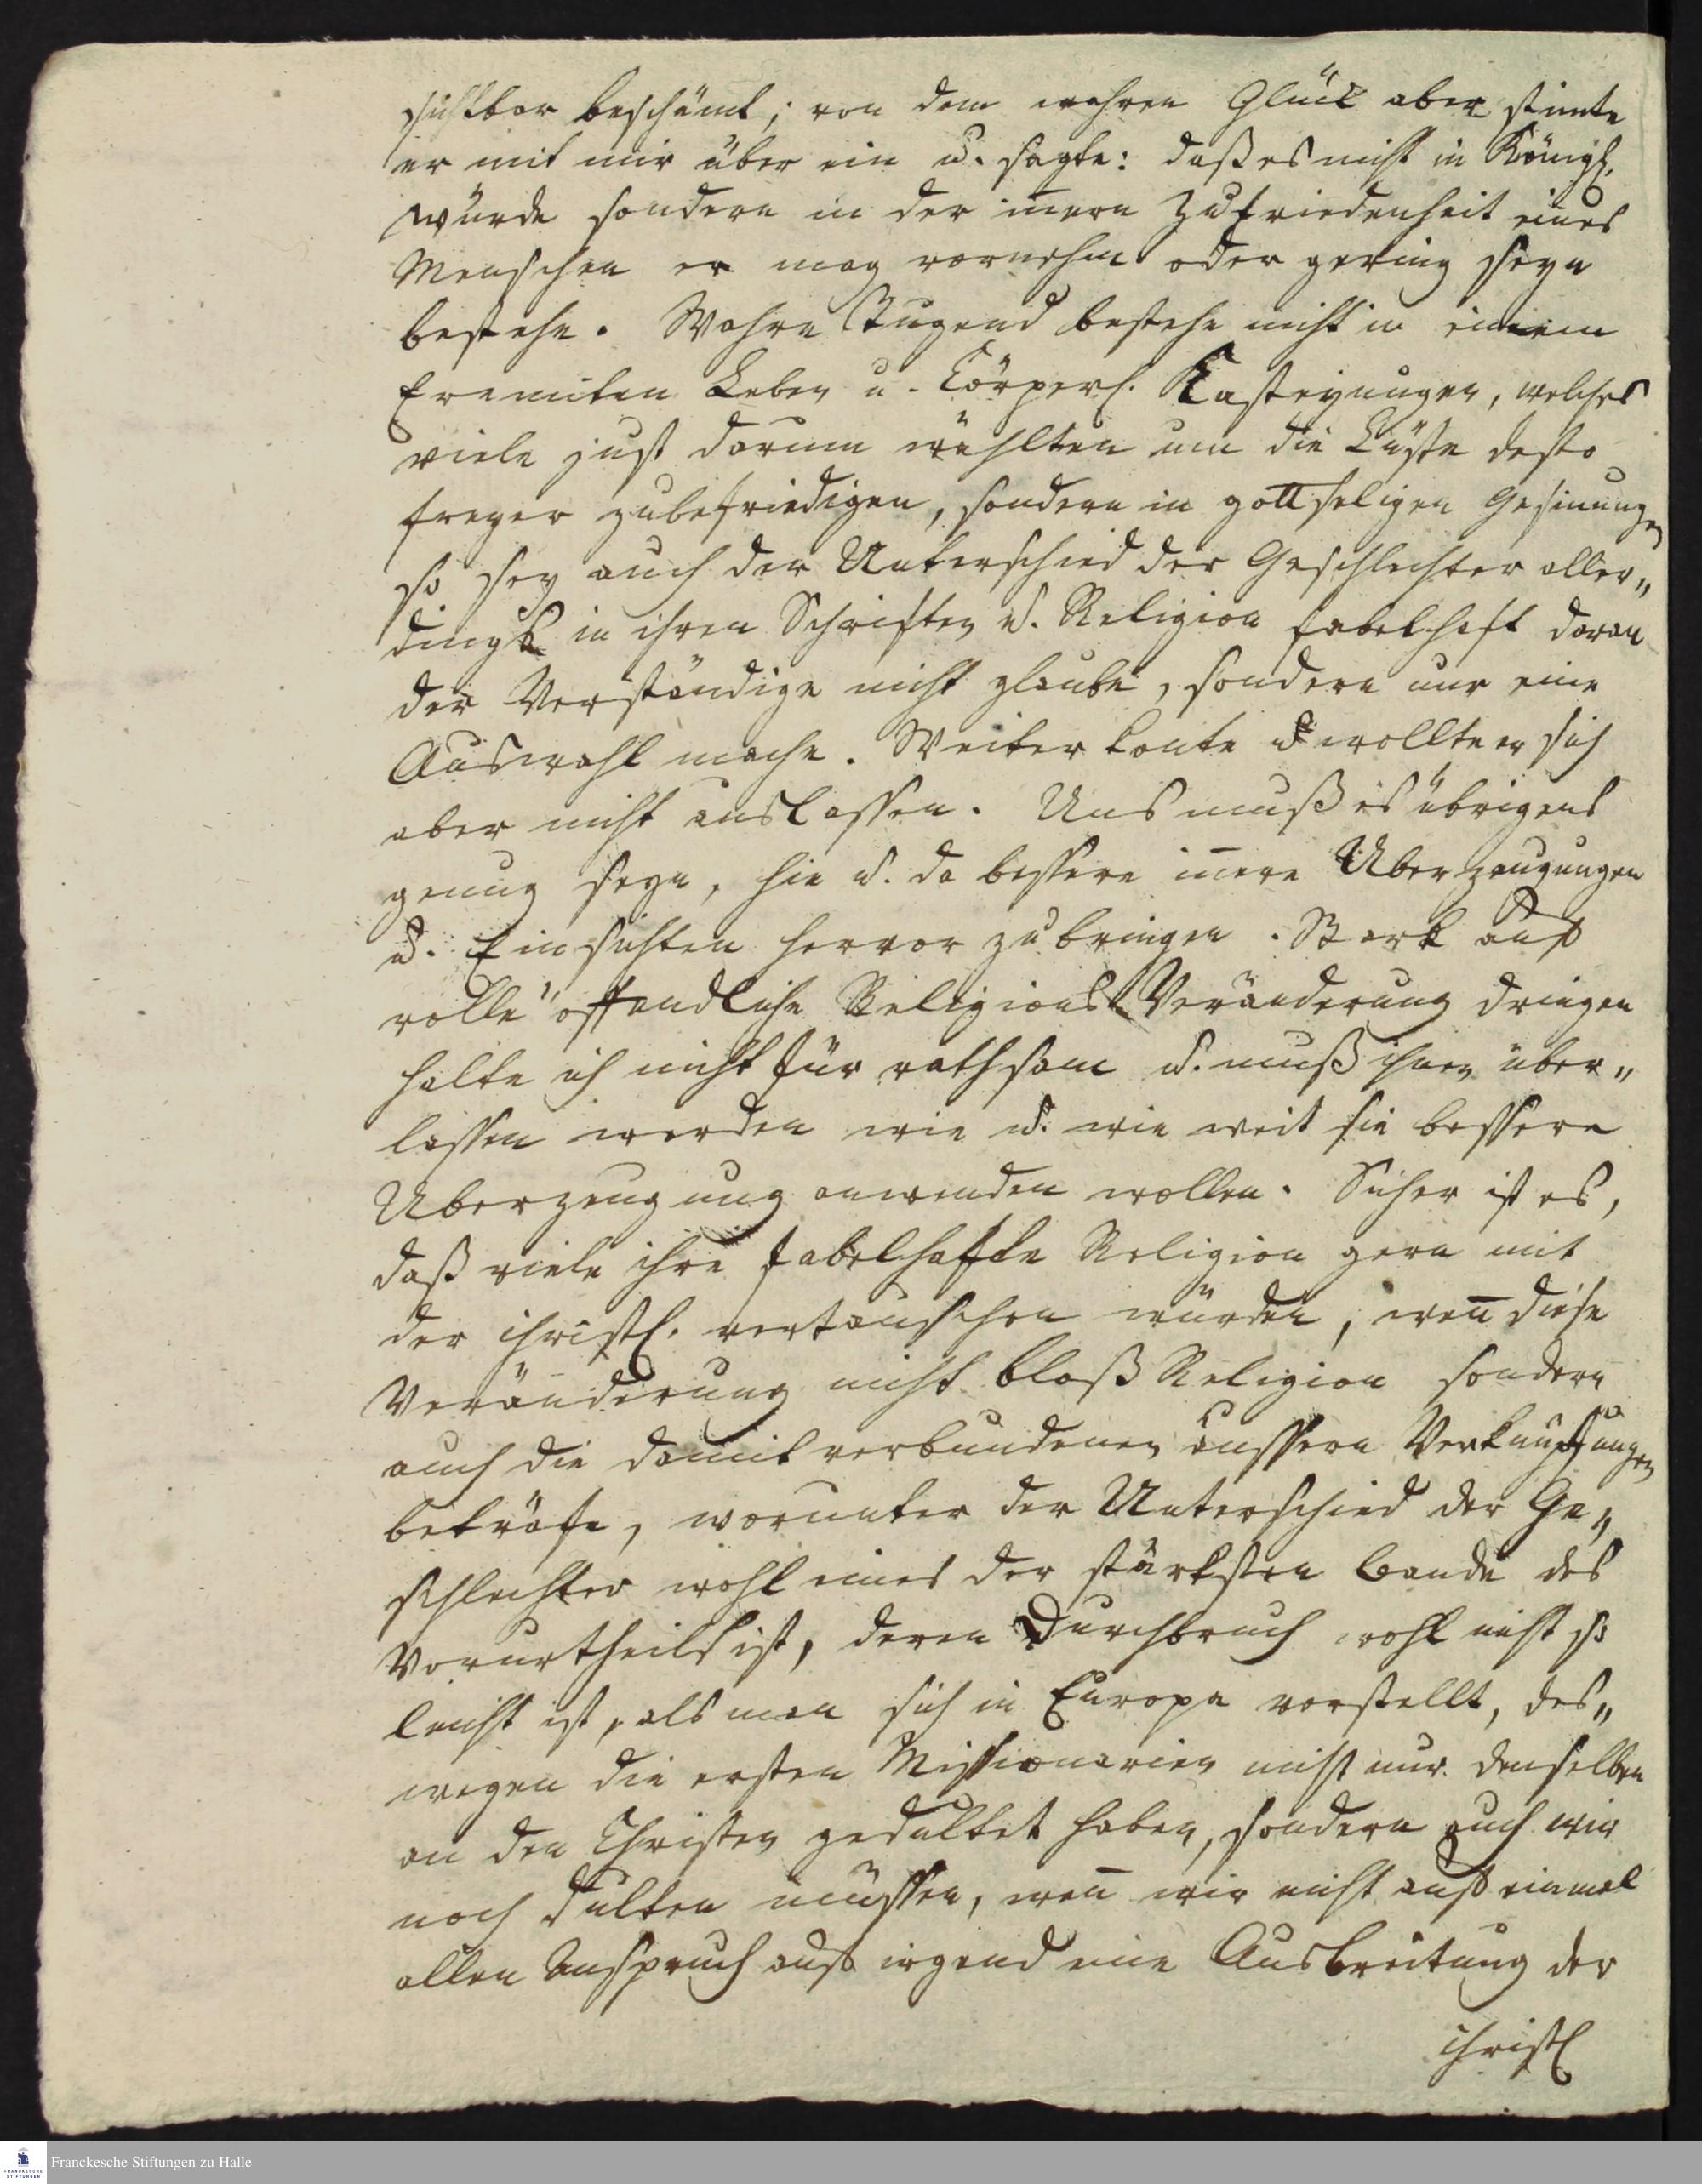 sichtbar beschämt; von dem wahren Glück aber stimte
er mit mir über ein u. sagte: daß es nicht in Königl.
würde sondern in der iñern Zufriedenheit eines
Menschen er mag vornehm oder gering seyn
bestehe. Wahre Tugend bestehe nicht in einem
Eremiten Leben u. Cörperl. Kasteyungen, welches
viele just darum wählten um die Lüste desto
freyer zubefriedigen, sondern in gottseligen Gesinungen
so sey auch der Unterschied der Geschlechter aller„
dings in ihren Schriften u. Religion fabelhaft daran
der Verständige nicht glaube, sondern nur eine
Auswahl mache. Weiter konte u wollte er sich
aber nicht auslassen. Uns muß es übrigens
genug seyn, hie u. da bessere iñere Uberzeugungen
u. Einsichten hervor zu bringen. Stark auf
volle öffendliche Religions Veränderung dringen
halte ich nicht für rathsam u. muß ihnen über„
lassen werden wie u. wie weit sie bessere
Uberzeugung anwenden wollen. Sicher ist es,
daß viele ihre fabelhafte Religion gern mit
der christl. vertauschen würden, weñ diese
Veränderung nicht bloß Religion sondern
auch die damit verbundenen äussern Verknüpfungen
beträfe, worunter der Unterschied der Ge„
schlechter wohl eines der stärksten Bande des
Vorurtheils ist, deren Durchbruch wohl nicht so
leicht ist, als man sich in Europa vorstellt, des„
wegen die ersten Missionarien nicht nur denselben
an den Christen gedultet haben, sondern auch wir
noch dulten müssen, weñ wir nicht auf einmal
allen Anspruch auf irgend eine Ausbreitung der
christl
Franckesche Stiftungen zu Halle
FRANCKESCHE STIFTUNGEN